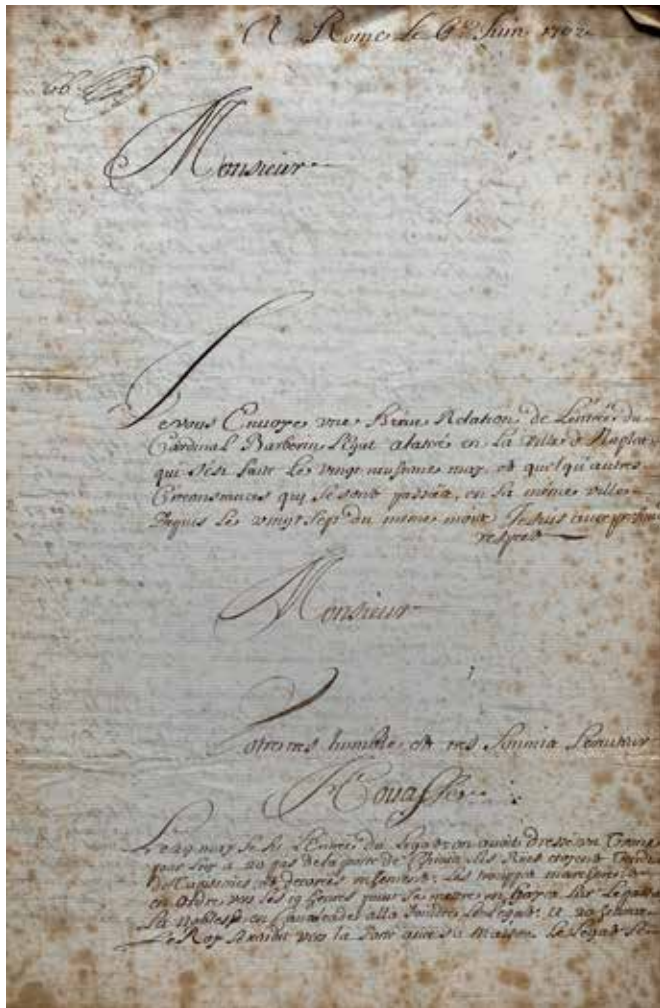 A Rome Le 6.e Juin 1702
Monsieur
Je vous Envoye une Brève Relation de L'entrée du
Cardinal Barberin Légat alatéré en La Ville de Naples
qui s'est faite Le vingt neufieme may, et quelqu'autres
Circonstances qui se sont passées, en la même ville
Depuis Le vingt Sept du même mois Je suis avec
respect
Monsieur
Votre tres humble et tres Soumis Serviteur
Le 29 may se fit L'Entrée du Legat on avoit dressé un
pas de la porte de Les Rües etoyent
de Tapisseries et decorées Les trouppes marcherent
en ordre, vers les 19 heures pour se mettre en Le Legat
La Noblesse en Cavalcade alla Le Legat
Le Roy vers la Porte avec sa Maison Le Legat